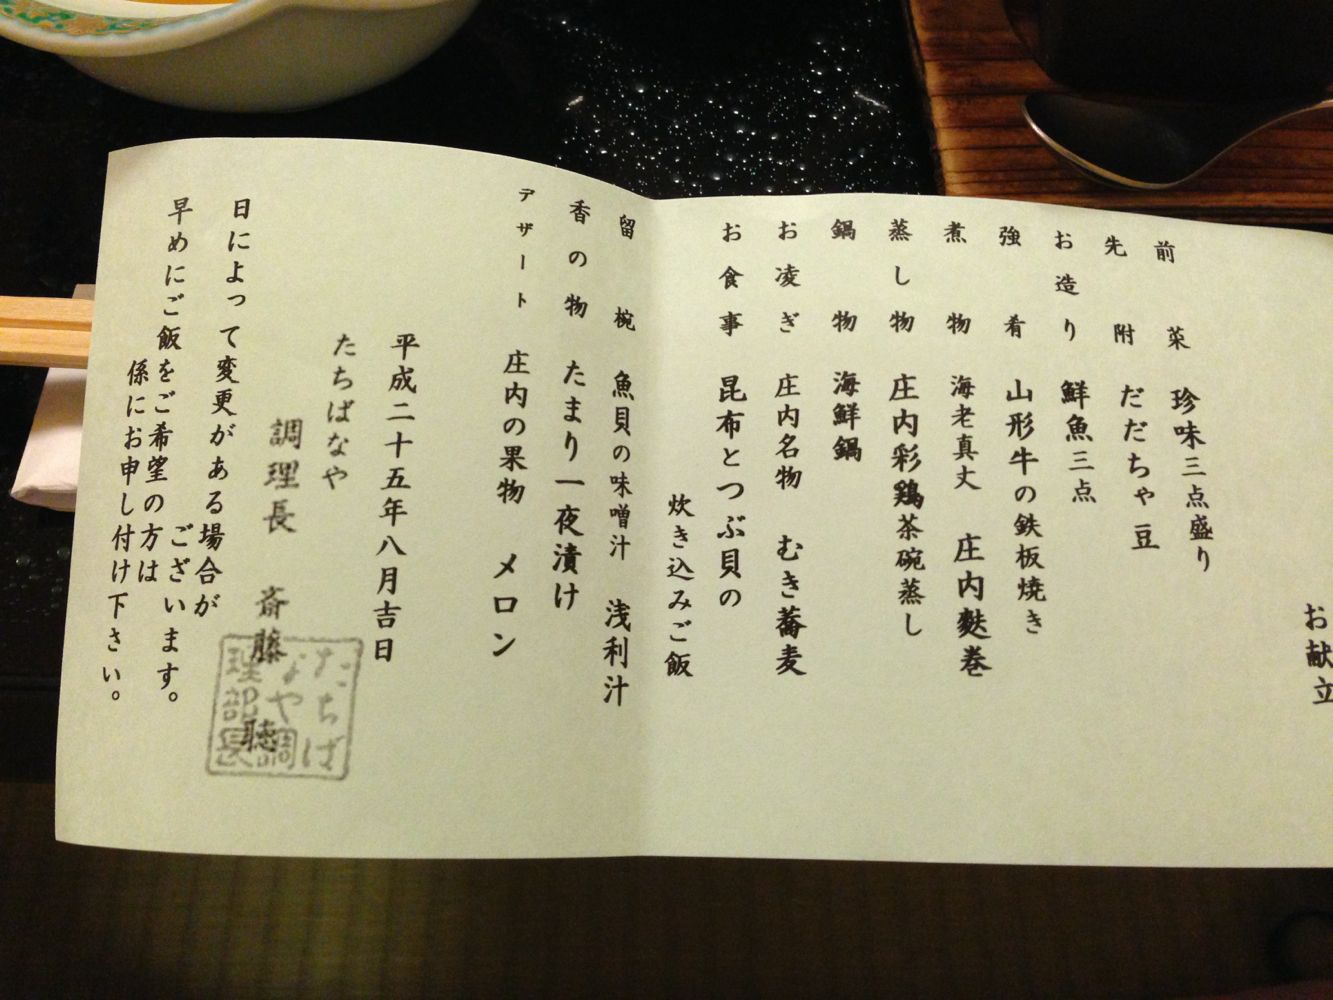 お献立
前菜 珍味三点盛り
先附 だだちゃ豆
お造り 鮮魚三点
強肴 山形牛の鉄板焼き
煮物 海老真丈 庄内麩巻
蒸し物 庄内彩鶏茶碗蒸し
鍋物 海鮮鍋
お凌ぎ 庄内名物 むき蕎麦
お食事 昆布とつぶ貝の
炊き込みご飯
留椀 魚貝の味噌汁 浅利汁
香の物 たまり一夜漬け
デザート 庄内の果物 メロン
平成二十五年八月吉日
たちばなや
調理長 斎藤 聴
たちば
なや調
理部長
日によって変更がある場合が
ございます。
早めにご飯をご希望の方は
係にお申し付け下さい。